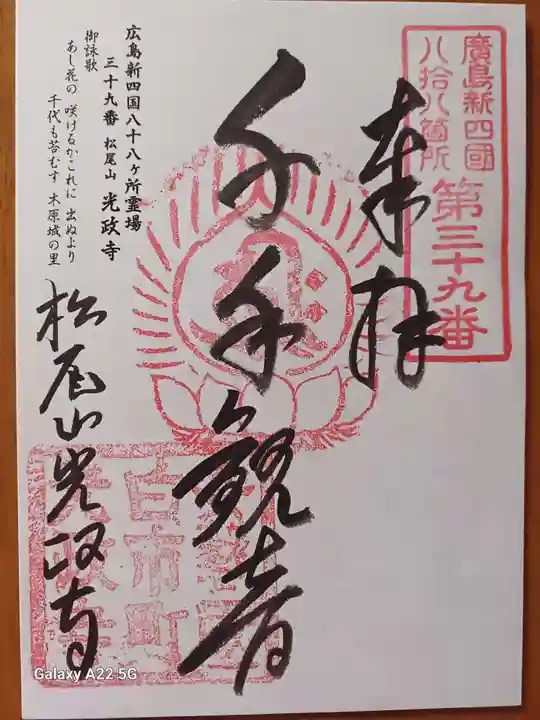 廣島新四國
八拾八箇所
第三十九番
奉拝
千手観音
広島新四国八十八ヶ所霊場
三十九番 松尾山 光政寺
御詠歌
あし花の 咲けるかこれに 出ぬより
千代も苔むす 木原城の里
松尾山光政寺
廿日市町
Galaxy A22 5G